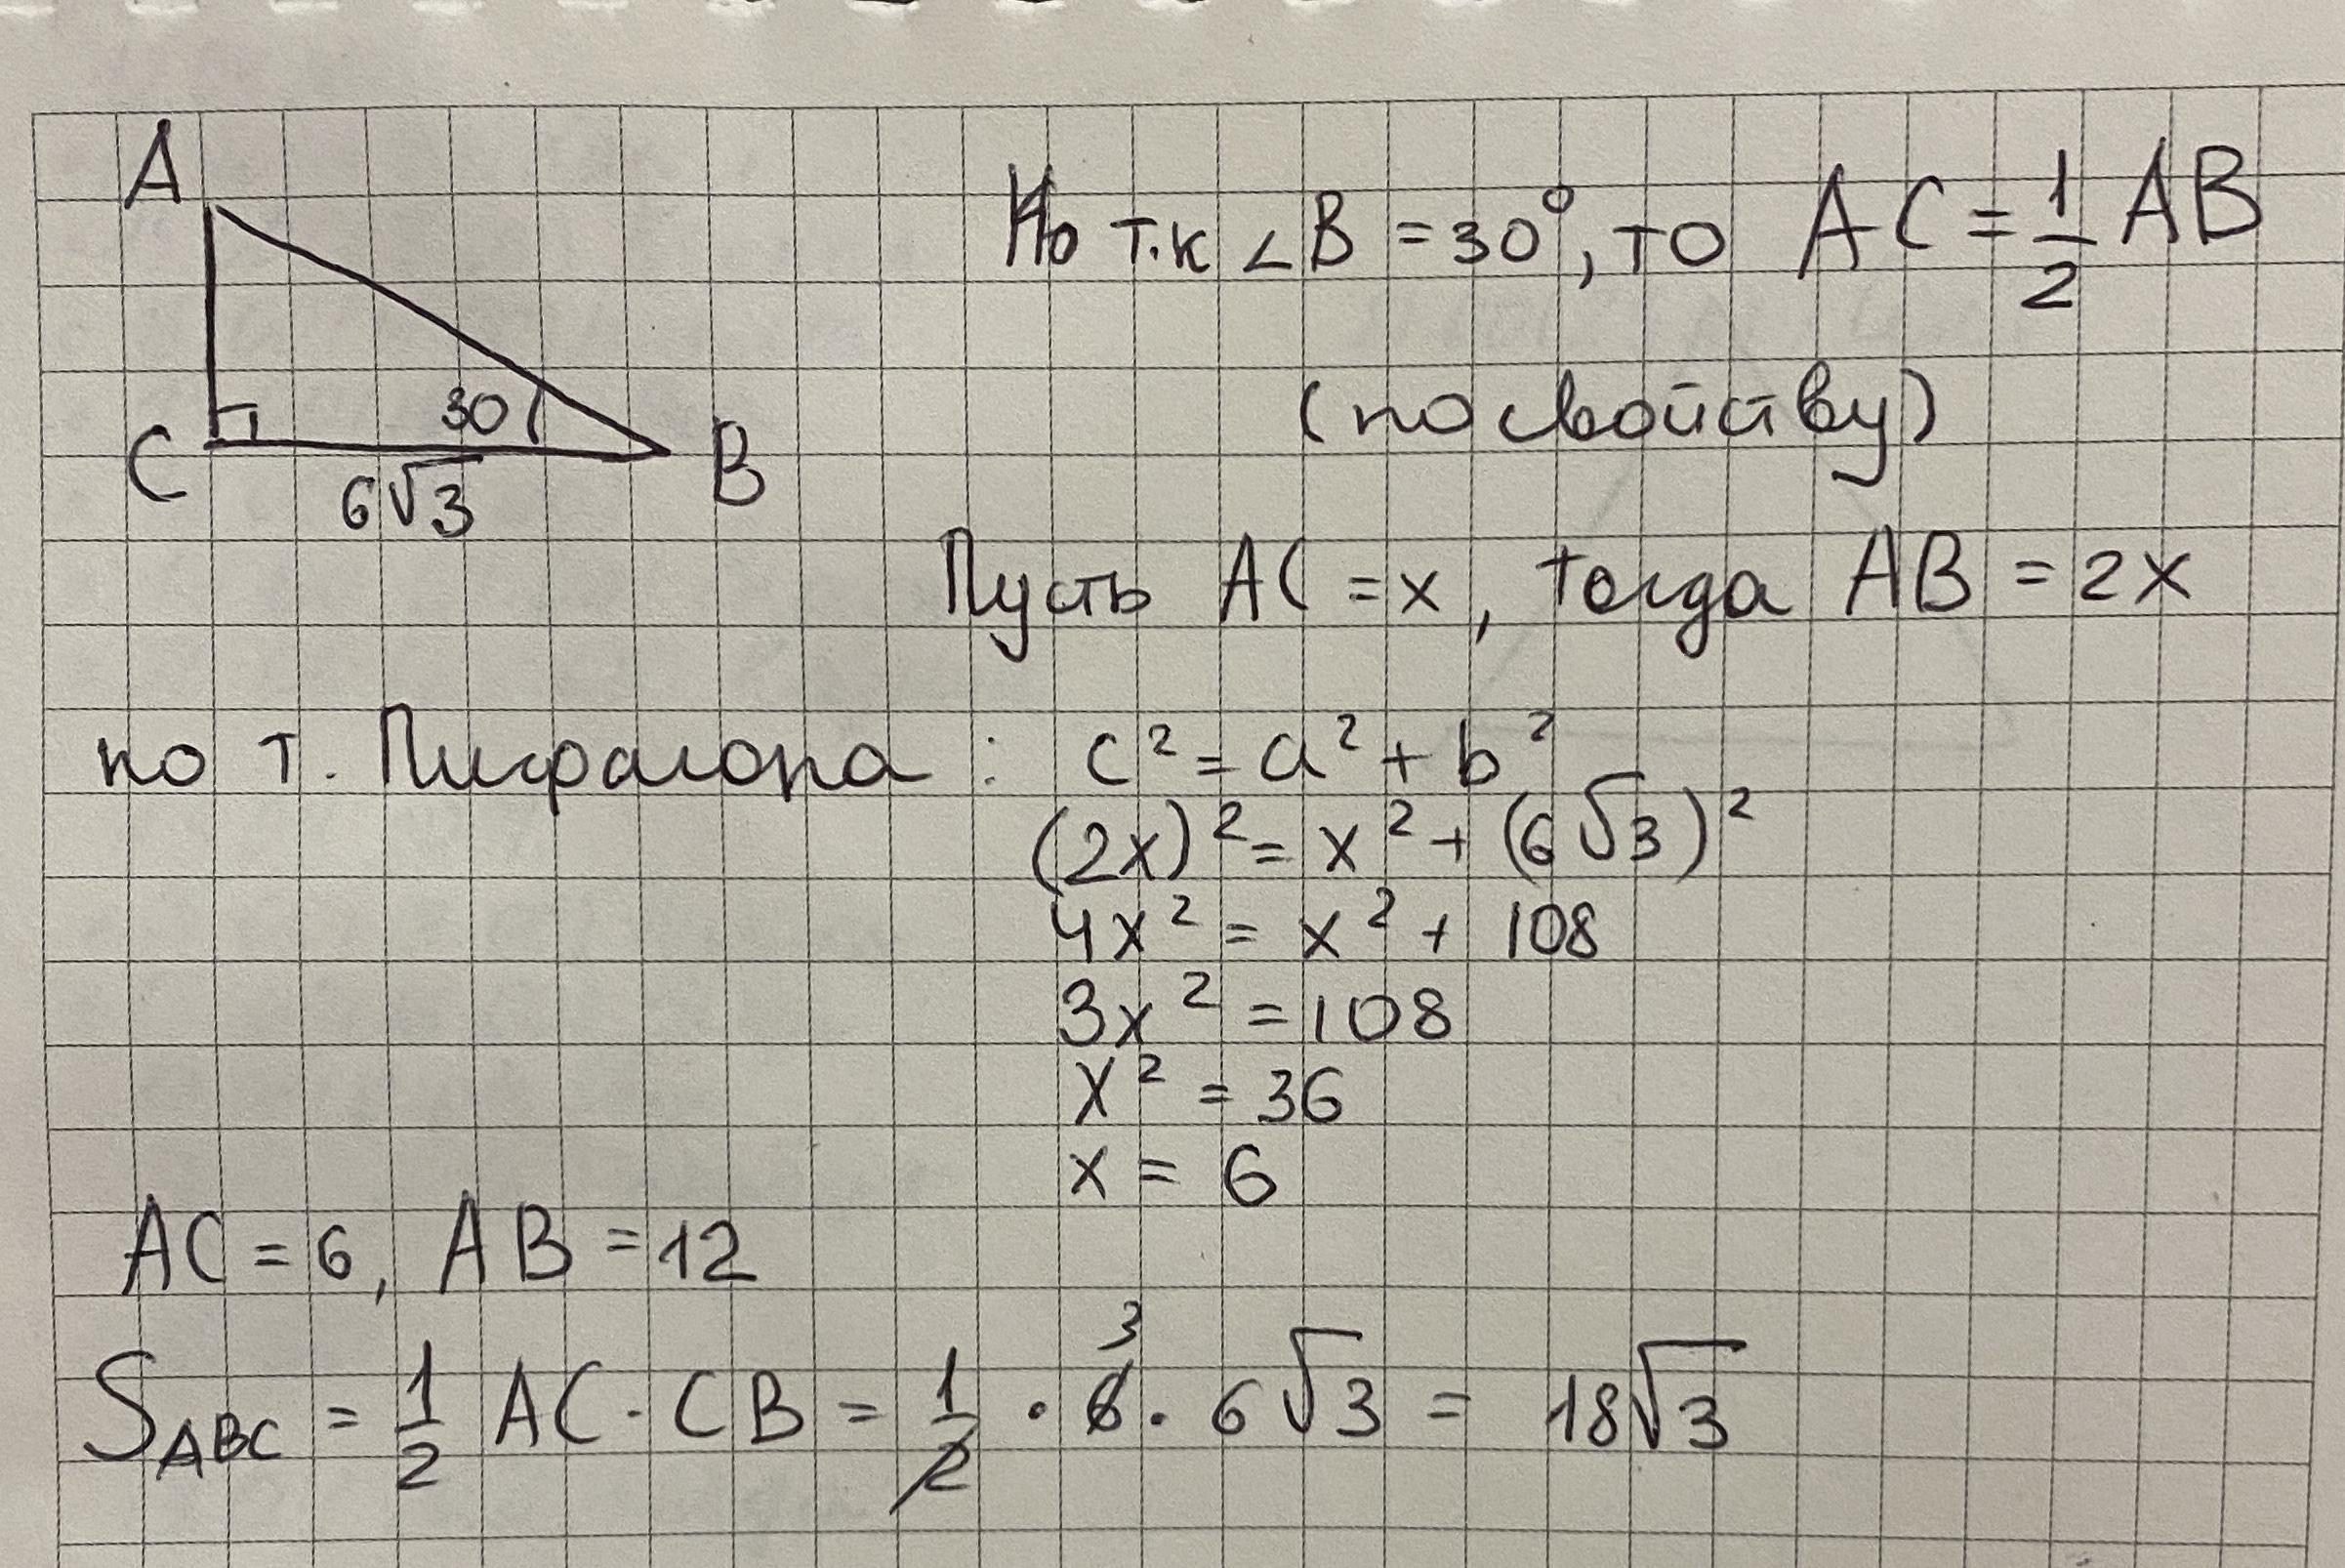 A
Но т.к ∠B = 30°, то AC = 1/2 AB
30
C
B
6√3
(по свойству)
Пусть AC = x, тогда AB = 2x
по т. Пифагора: c² = a² + b²
(2x)² = x² + (6√3)²
4x² = x² + 108
3x² = 108
x² = 36
x = 6
AC = 6, AB = 12
3
S ABC = 1/2 AC · CB = 1/2 · 6 · 6√3 = 18√3